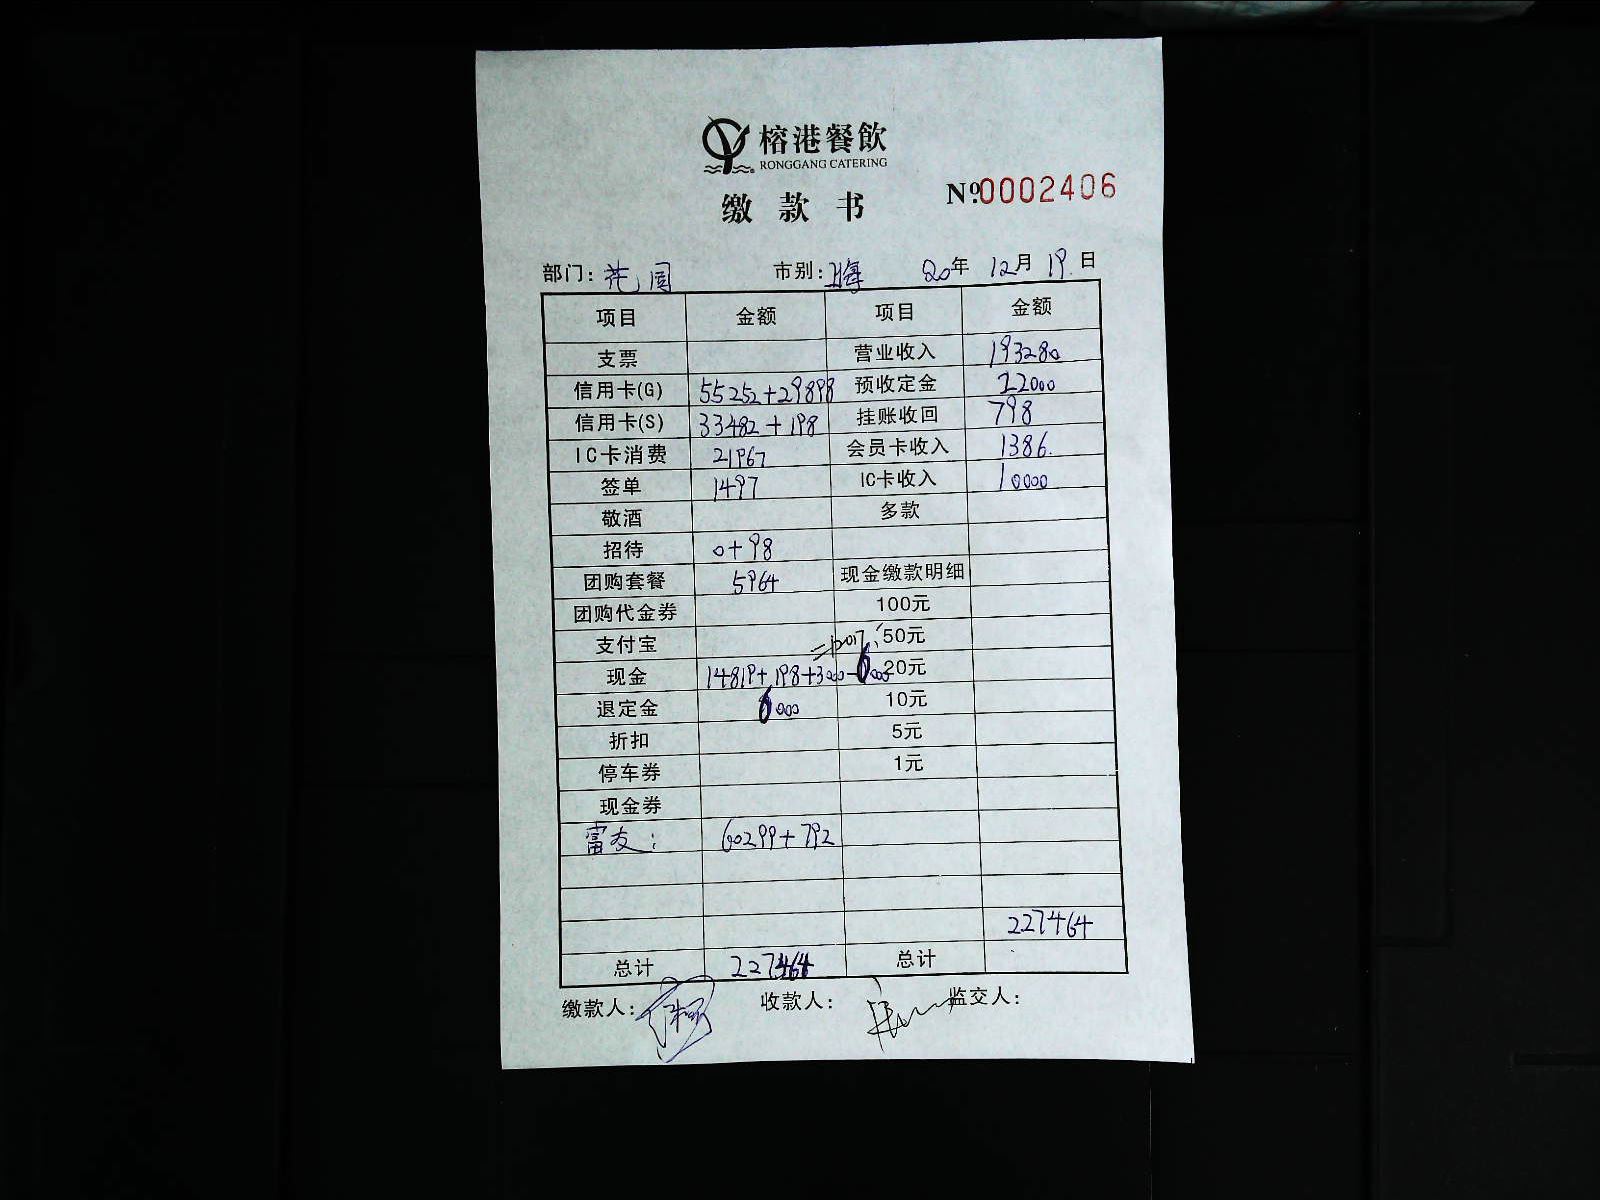 榕港餐飲
RONGGANG CATERING
缴款书
Nº0002406
部门: 芫园 市别: 上海 20年 12月 19日
项目 金额 项目 金额
支票 营业收入 193280
信用卡(G) 55252+29898 预收定金 22000
信用卡(S) 33482+198 挂账收回 798
IC卡消费 21967 会员卡收入 1386.
签单 1497 IC卡收入 10000
敬酒 多款
招待 0+98
团购套餐 5964 现金缴款明细
团购代金券 100元
支付宝 =12017 50元
现金 14819+198+3000-6000 20元
退定金 6000 10元
折扣 5元
停车券 1元
现金券
富友: 60299+792
227464
总计 227464 总计
缴款人: 收款人: 监交人: